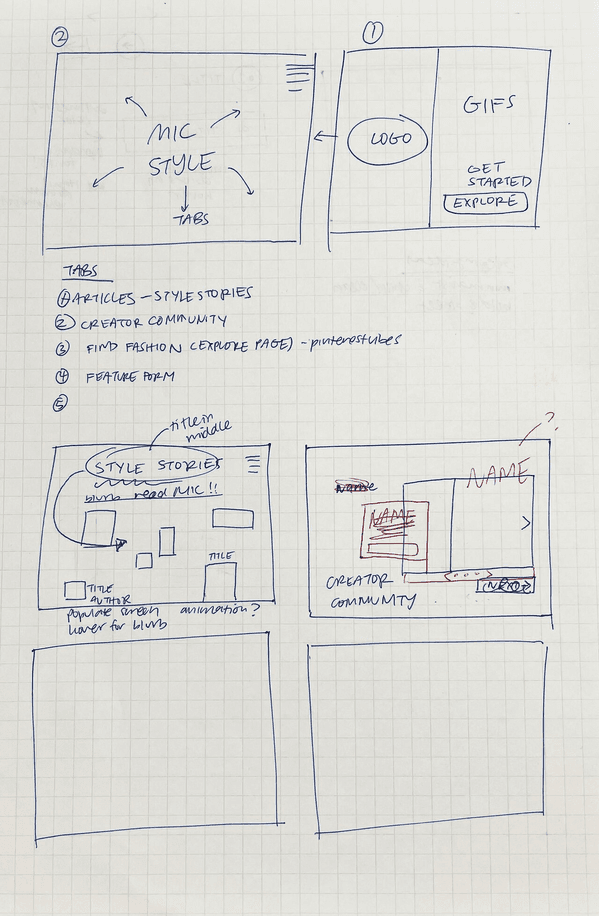 ②
①
MIC
STYLE
TABS
LOGO
GIFS
GET
STARTED
EXPLORE
TABS
① ARTICLES - STYLE STORIES
② CREATOR COMMUNITY
③ FIND FASHION (EXPLORE PAGE) - pinterestvibes
④ FEATURE FORM
⑤
title in
middle
STYLE STORIES
blurb read MIC!!
TITLE
TITLE
AUTHOR
populate screen animation?
hover for blurb
?
NAME
Name
NAME
CREATOR
COMMUNITY